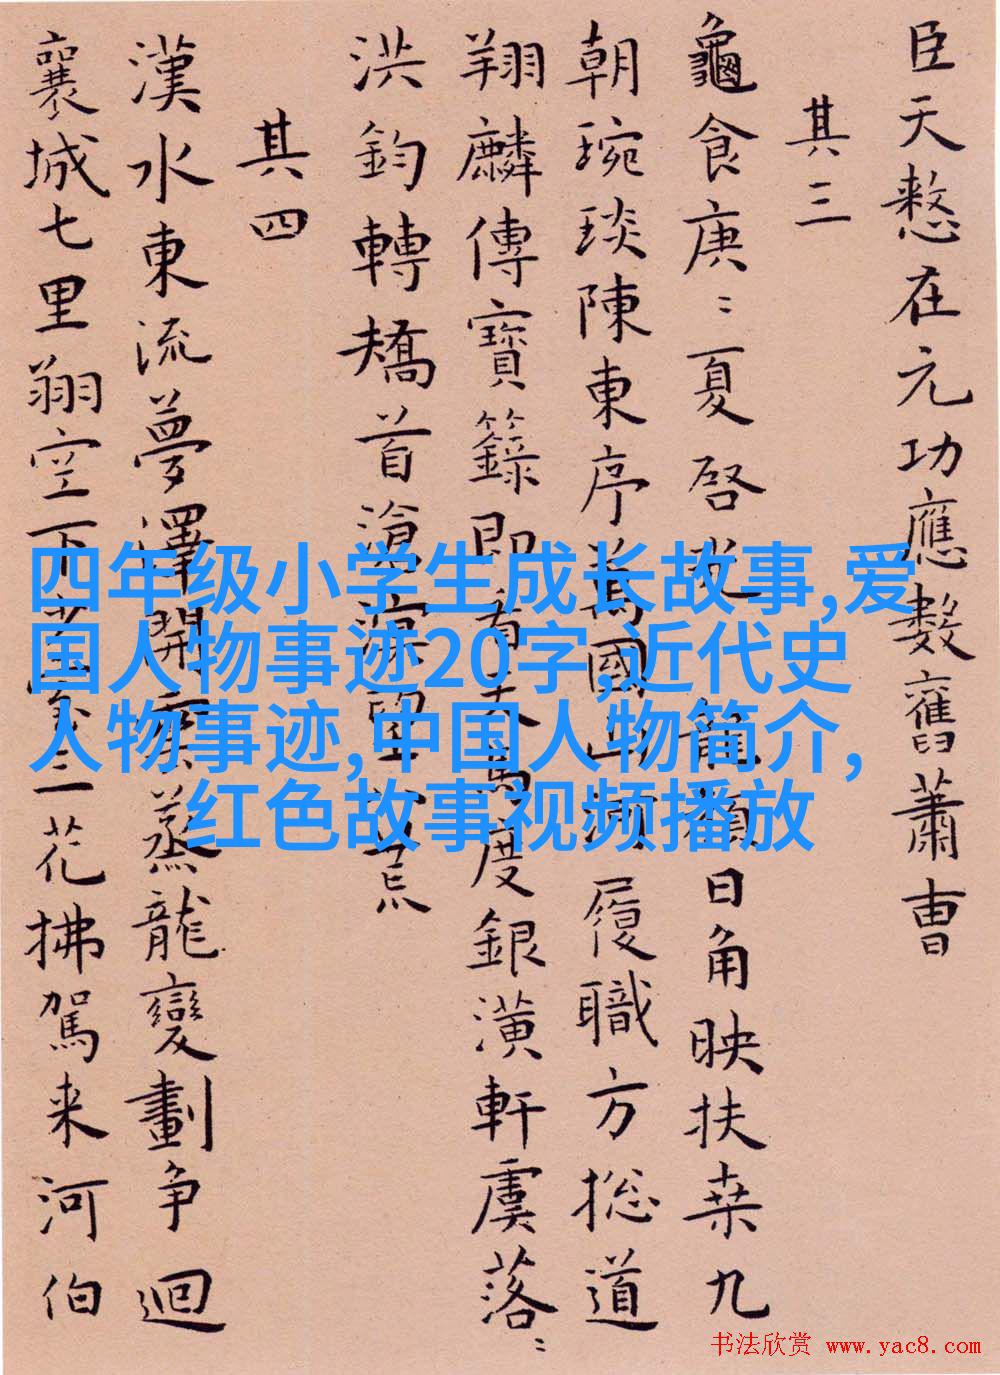 臣天憖在元功應數舊蕭曹
其三
龜食庚〻夏啓光 龍顏日角映扶桒九
朝琬琰陳東序萬國山河履職方揔道
翔麟傳寶籙即看天馬度銀潢軒虞落〻
洪鈞轉矯首滄溟望 荒
其四
漢水東流夢澤開 蒸龍變劃争迴
襄城七里翔空下 三花拂駕来河伯
四年级小学生成长故事,爱
国人物事迹20字,近代史
人物事迹,中国人物简介,
红色故事视频播放
书法欣赏 www.yac8.com